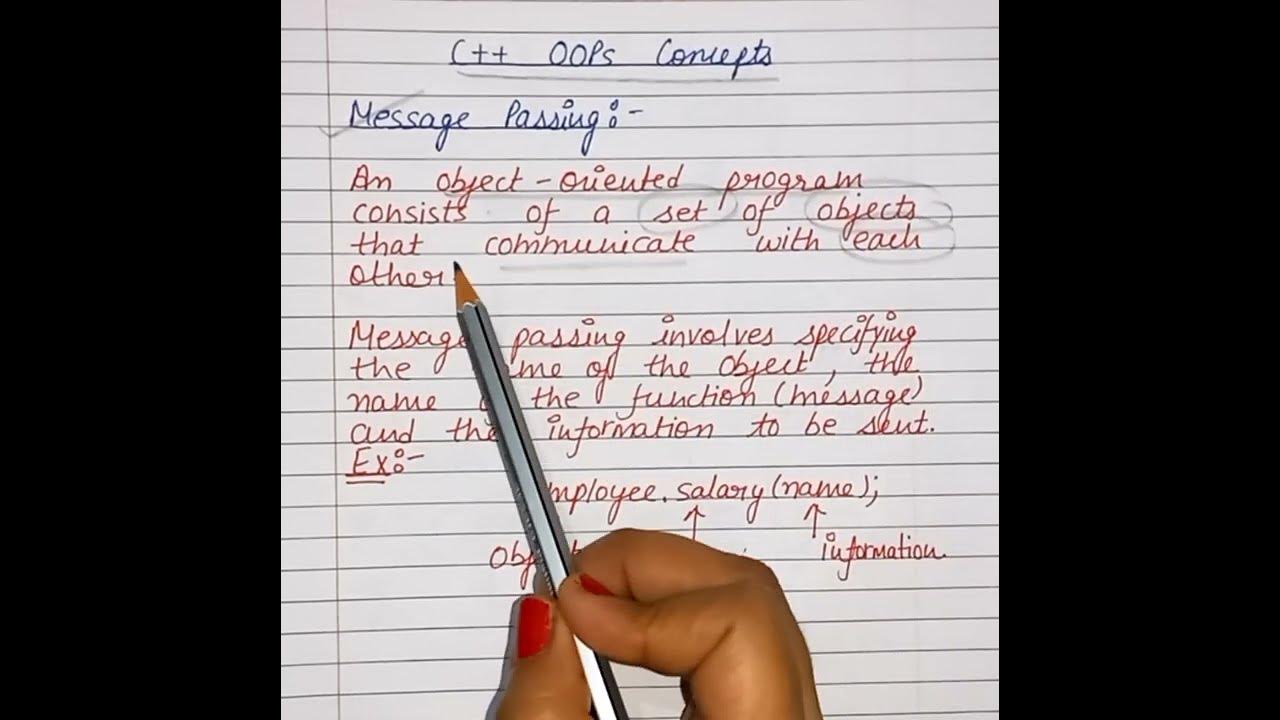 C++ OOPs Concepts
Message Passing:-
An object-oriented program
consists of a set of objects
that communicate with each
other
Message passing involves specifying
the of the object, the
name the function (message)
and the information to be sent.
Ex:-
salary (name);
information